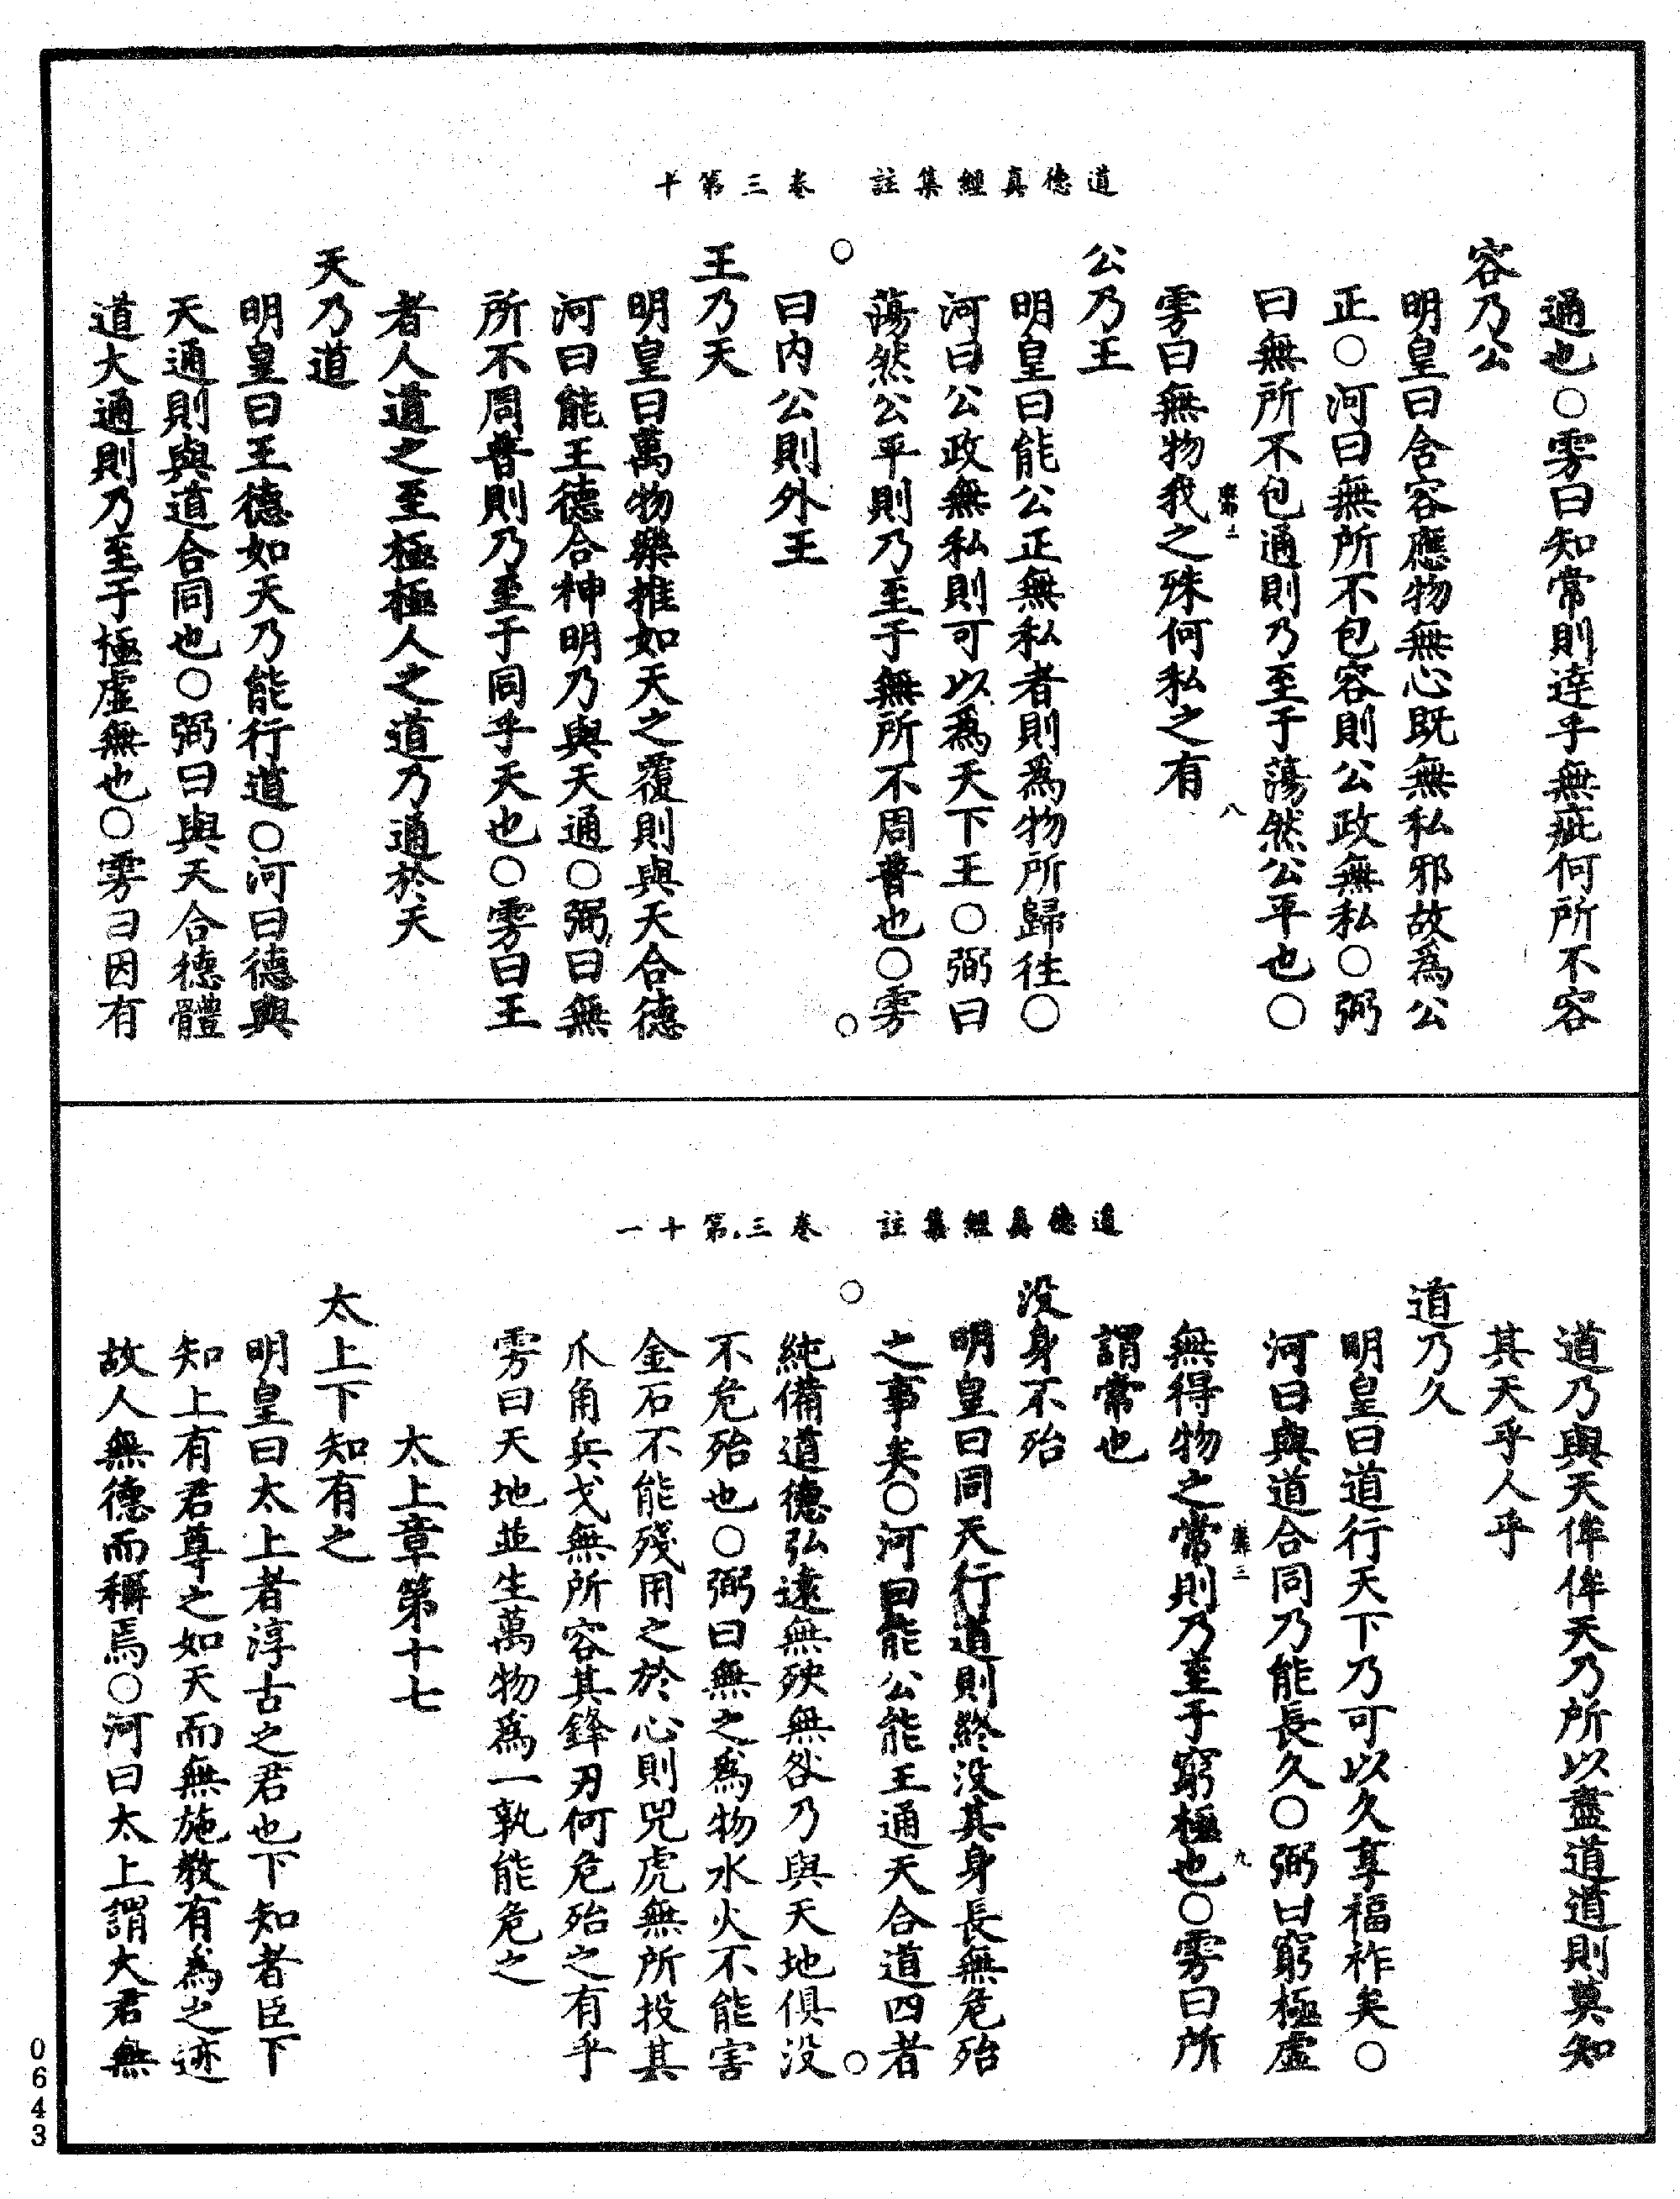 道德真經集註　卷三第十
通也○雱曰知常則達乎無疵何所不容
容乃公
明皇曰含容應物無心既無私邪故為公
正○河曰無所不包容則公政無私○弼
曰無所不包通則乃至于蕩然公平也○
八
雱曰無物我之殊何私之有
公乃王
明皇曰能公正無私者則為物所歸往○
河曰公政無私則可以為天下王○弼曰
蕩然公平則乃至于無所不周普也○雱
○　○
曰内公則外王
王乃天
明皇曰萬物樂推如天之覆則與天合德
河曰能王德合神明乃與天通○弼曰無
所不周普則乃至于同乎天也○雱曰王
者人道之至極極人之道乃通於天
天乃道
明皇曰王德如天乃能行道○河曰德與
天通則與道合同也○弼曰與天合德體
道大通則乃至于極虛無也○雱曰因有
道德真經集註　卷三第十一
道乃與天侔侔天乃所以盡道道則莫知
其天乎人乎
道乃久
明皇曰道行天下乃可以久享福祚矣○
河曰與道合同乃能長久○弼曰窮極虛
三　九
無得物之常則乃至于窮極也○雱曰所
謂常也
没身不殆
明皇曰同天行道則終没其身長無危殆
之事矣○河曰能公能王通天合道四者
○　○
純備道德弘遠無殃無咎乃與天地俱没
不危殆也○弼曰無之為物水火不能害
金石不能殘用之於心則兕虎無所投其
爪角兵戈無所容其鋒刃何危殆之有乎
雱曰天地並生萬物為一孰能危之
太上章第十七
太上下知有之
明皇曰太上者淳古之君也下知者臣下
知上有君尊之如天而無施教有為之迹
故人無德而稱焉○河曰太上謂大君無
0643